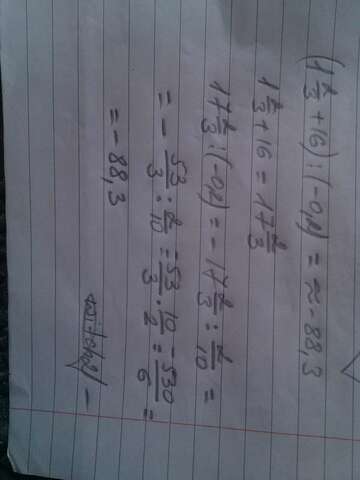 (1 2/3 + 16) : (-0,2) = ≈ -88,3
1 2/3 + 16 = 17 2/3
17 2/3 : (-0,2) = - 17 2/3 : 2/10 =
= - 53/3 : 2/10 = 53/3 · 10/2 = 530/6 =
= - 88,3